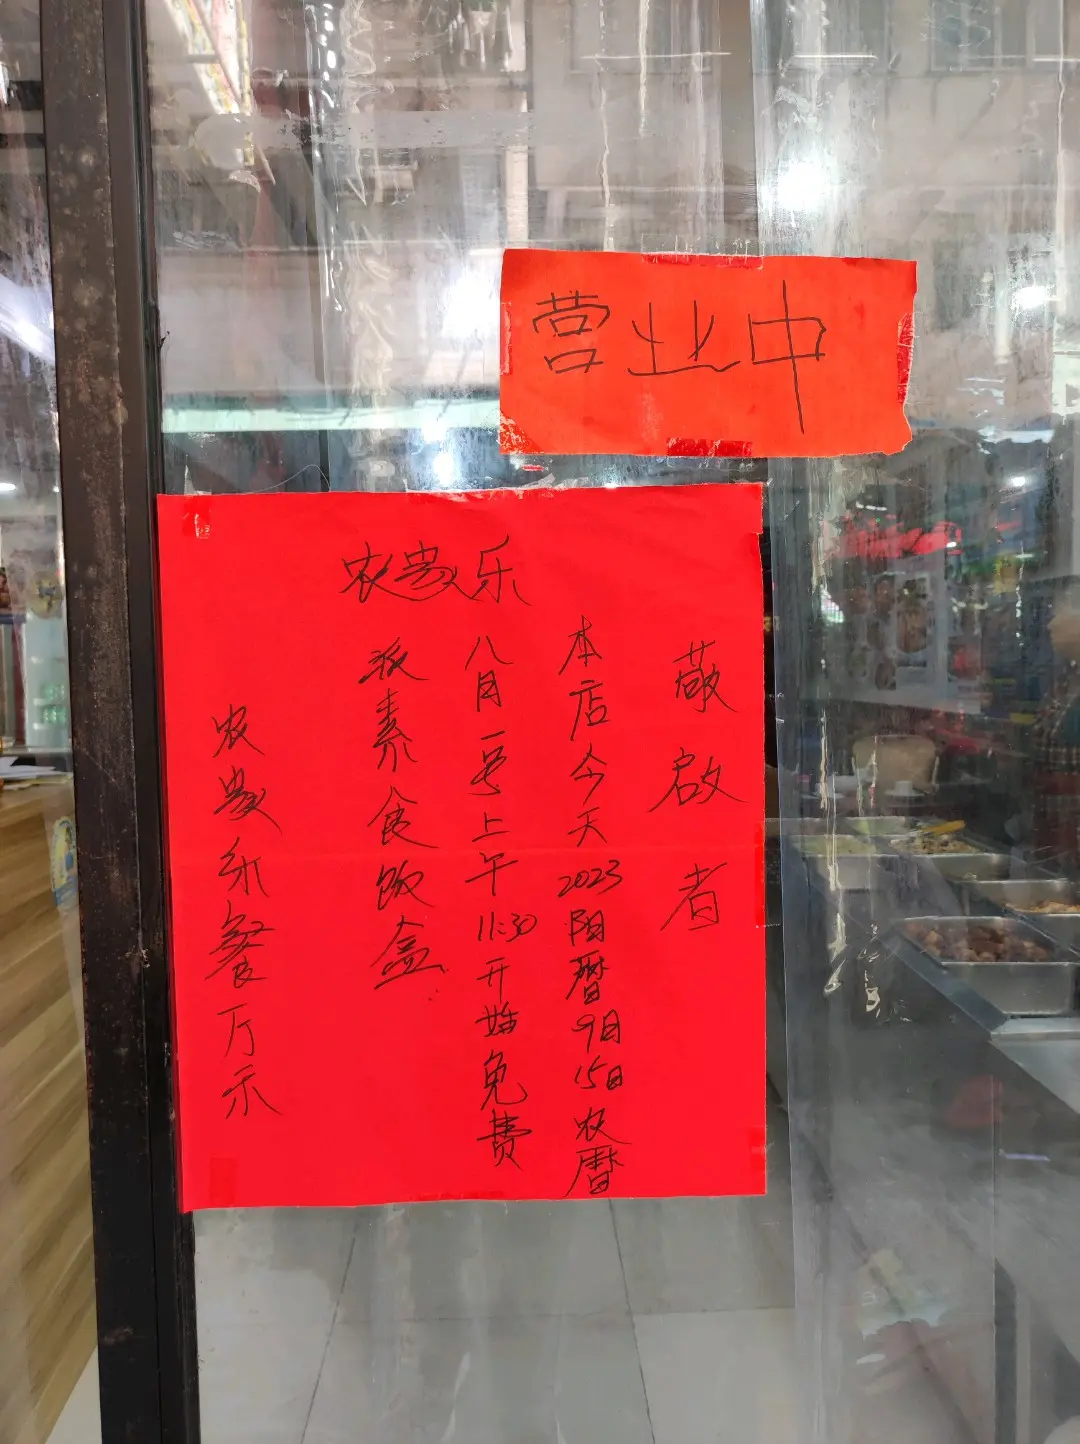 营业中
农家乐
敬启者
本店今天2023阳暦9月15日农暦
八月一号上午11:30开始免费
派素食饭盒
农家乐餐厅示